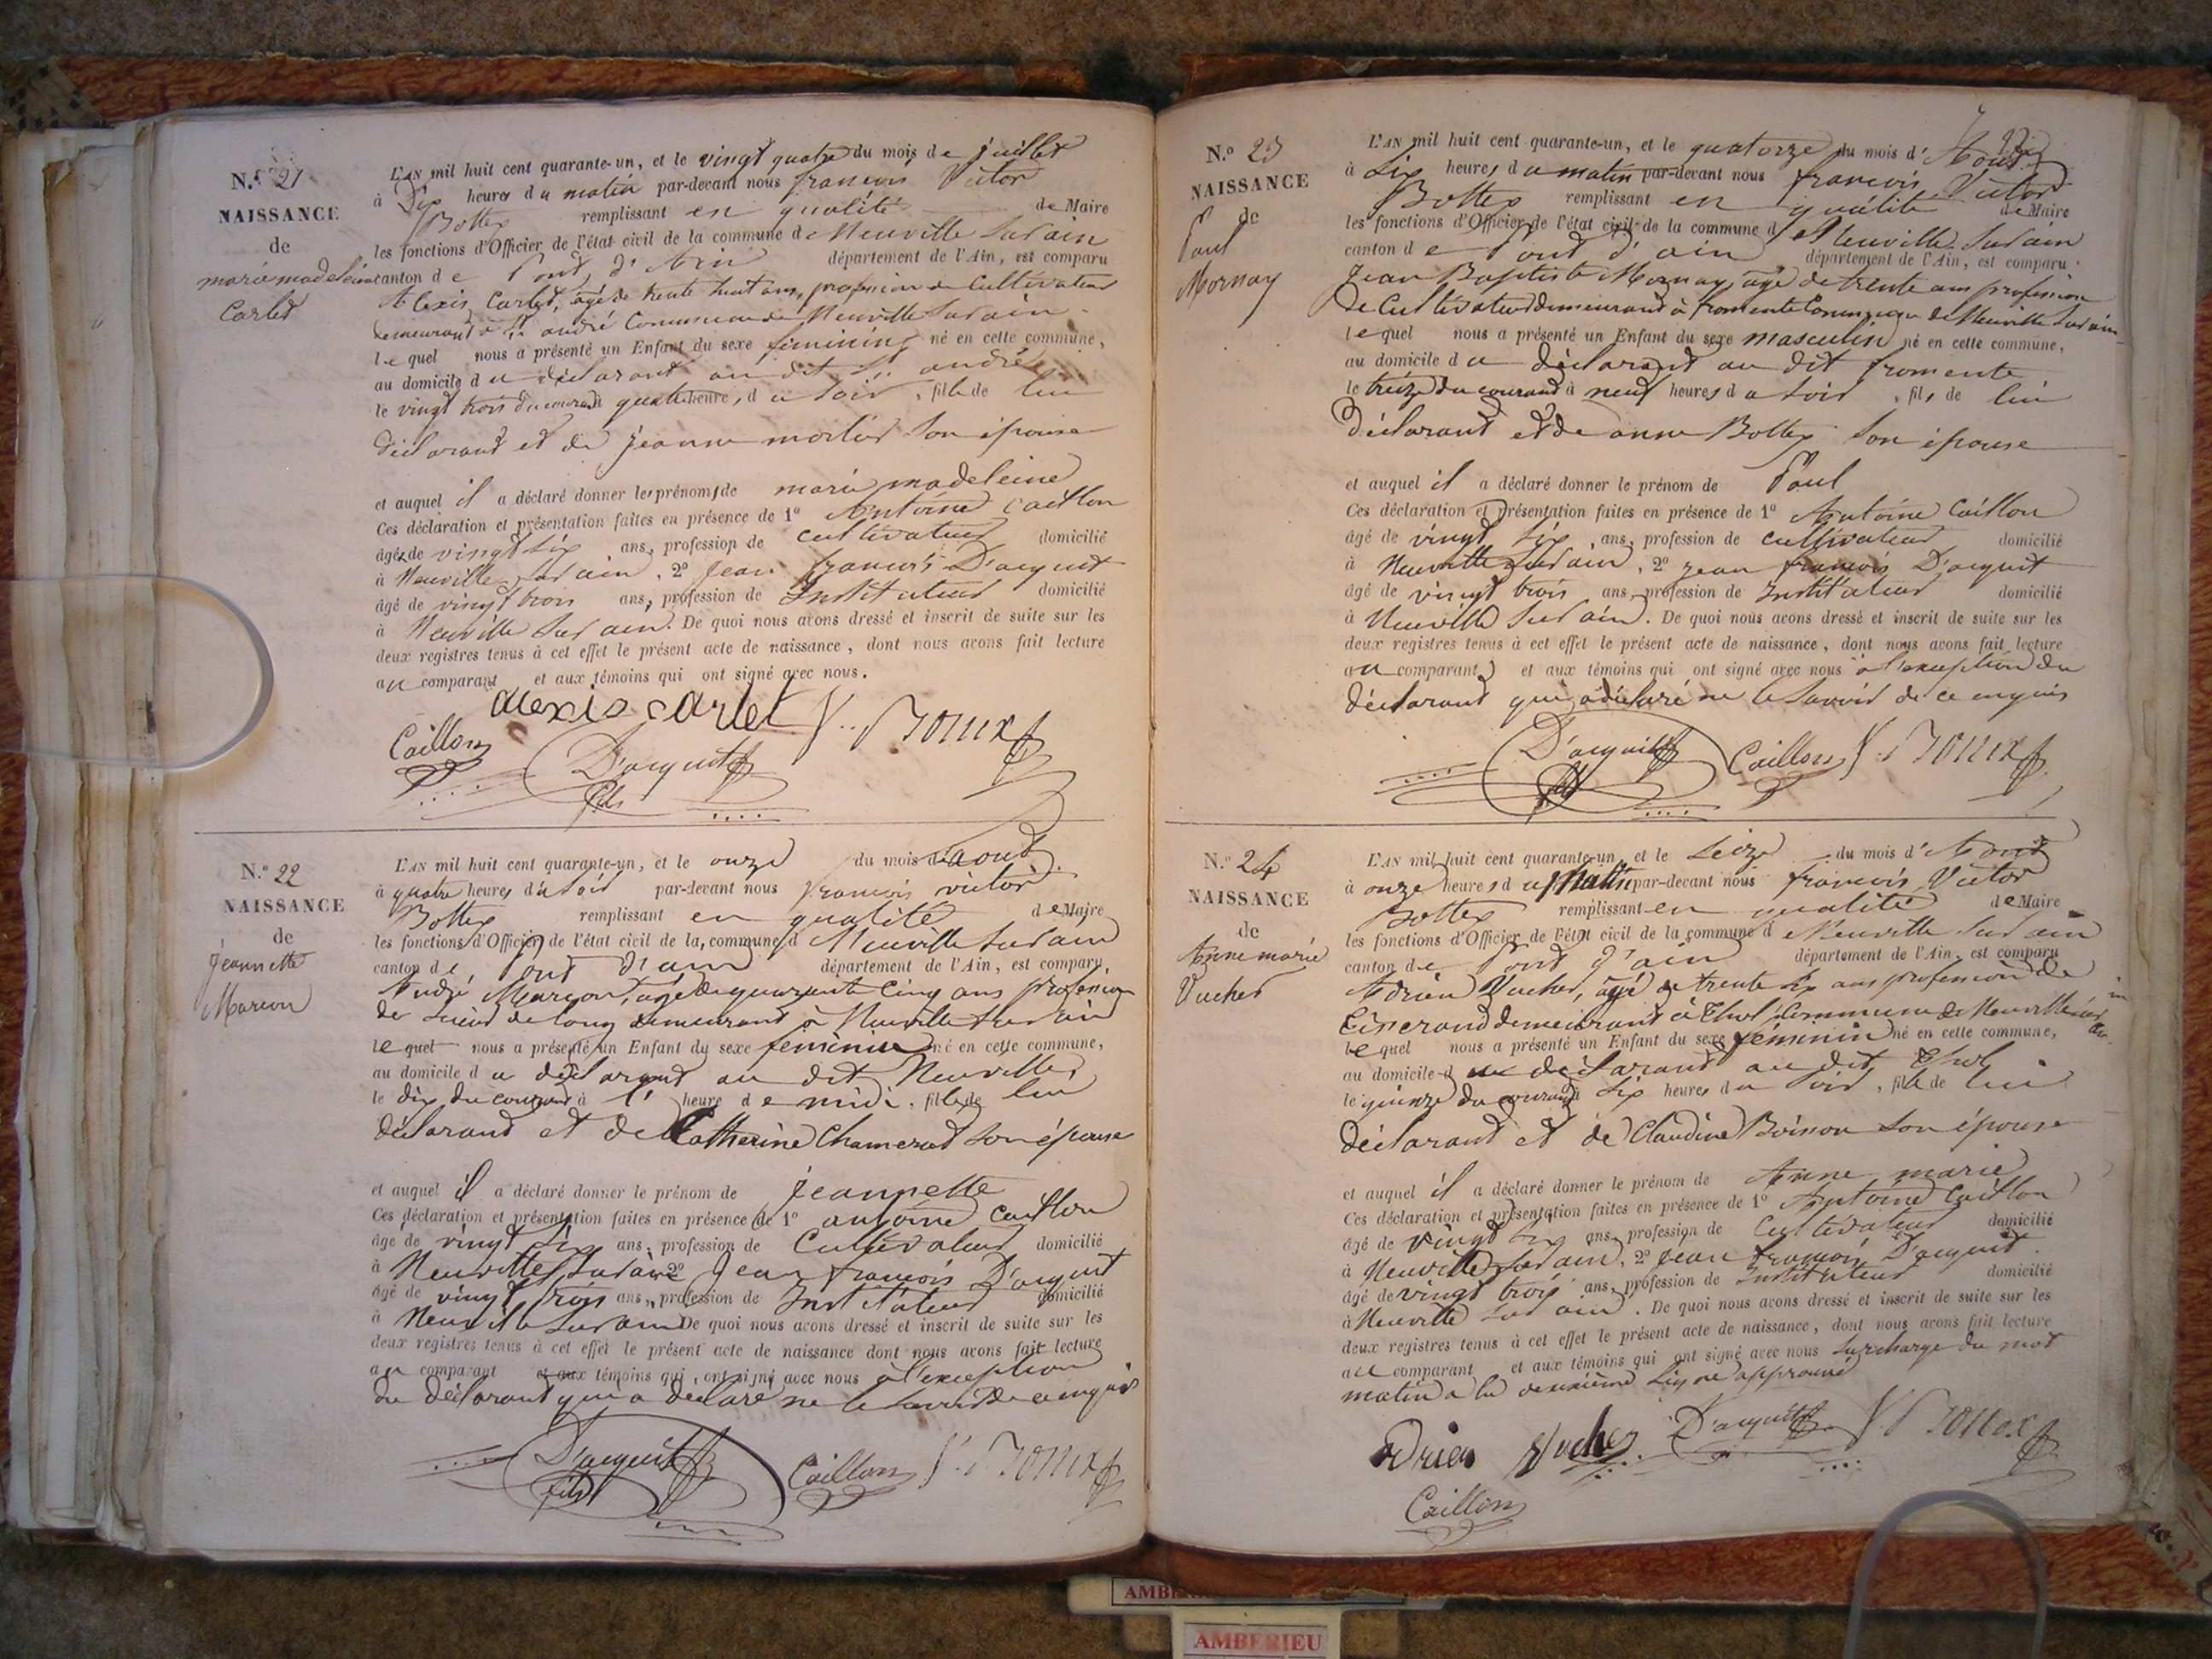 N.o 21
NAISSANCE
de
marie madeleine
Carlet
L'AN mil huit cent quarante-un, et le vingt quatre du mois de juillet
à Dix heures du matin par-devant nous francois Victor
Bottex remplissant en qualité de Maire
les fonctions d'Officier de l'état civil de la commune de Neuville sur ain
canton de Pont d'Ain département de l'Ain, est comparu
Alexis Carlet, âgé de trente huit ans, profession de Cultivateur
demeurant à St andré Commune de Neuville sur ain
lequel nous a présenté un Enfant du sexe féminin né en cette commune,
au domicile du déclarant au dit St andré
le vingt trois du courant à quatre heure, du soir, fille de lui
déclarant et de jeanne mortier son épouse
et auquel il a déclaré donner les prénoms de marie madeleine
Ces déclaration et présentation faites en présence de 1o Antoine Caillon
âgé de vingt six ans, profession de cultivateur domicilié
à Neuville sur ain, 2o jean francois D'acquit
âgé de vingt trois ans, profession de Instituteur domicilié
à Neuville sur ain. De quoi nous avons dressé et inscrit de suite sur les
deux registres tenus à cet effet le présent acte de naissance, dont nous avons fait lecture
au comparant et aux témoins qui ont signé avec nous.
alexis carlet V. Bottex
Caillon D'acquit fils
N.o 22
NAISSANCE
de
Jeannette
Marcon
L'AN mil huit cent quarante-un, et le onze du mois d'aout
à quatre heures du soir par-devant nous francois victor
Bottex remplissant en qualité de Maire
les fonctions d'Officier de l'état civil de la commune d Neuville sur ain
canton de Pont d'ain département de l'Ain, est comparu
André Marcon, âgé de quarante cinq ans profession
de scieur de long demeurant à Neuville sur ain
lequel nous a présenté un Enfant du sexe feminin né en cette commune,
au domicile du déclarant au dit Neuville
le dix du courant à l' heure de midi, fille de lui
déclarant et de Catherine Chamerat son épouse
et auquel il a déclaré donner le prénom de jeannette
Ces déclaration et présentation faites en présence de 1o antoine Caillon
âgé de vingt six ans, profession de Cultivateur domicilié
à Neuville sur ain 2o Jean francois D'acquit
âgé de vingt trois ans, profession de Instituteur domicilié
à Neuville sur ain De quoi nous avons dressé et inscrit de suite sur les
deux registres tenus à cet effet le présent acte de naissance dont nous avons fait lecture
au comparant et aux témoins qui ont signé avec nous à l'exception
du déclarant qui a déclaré ne le savoir de ce enquis
D'acquit fils Caillon V. Bottex
N.o 23
NAISSANCE
de
Paul
Mornay
L'AN mil huit cent quarante-un, et le quatorze du mois d'Aout
à six heures du matin par-devant nous francois Victor
Bottex remplissant en qualité de Maire
les fonctions d'Officier de l'état civil de la commune de Neuville sur ain
canton de Pont d'ain département de l'Ain, est comparu
Jean Baptiste Mornay, âgé de trente ans profession
de Cultivateur demeurant à fromente Commune de Neuville sur ain
lequel nous a présenté un Enfant du sexe masculin né en cette commune,
au domicile du déclarant au dit fromente
le treize du courant à neuf heures du soir, fils de lui
déclarant et de anne Bottex son épouse
et auquel il a déclaré donner le prénom de Paul
Ces déclaration et présentation faites en présence de 1o Antoine Caillon
âgé de vingt six ans, profession de cultivateur domicilié
à Neuville sur ain, 2o jean francois D'acquit
âgé de vingt trois ans, profession de Instituteur domicilié
à Neuville sur ain. De quoi nous avons dressé et inscrit de suite sur les
deux registres tenus à cet effet le présent acte de naissance, dont nous avons fait lecture
au comparant et aux témoins qui ont signé avec nous à l'exception du
déclarant qui a déclaré ne le savoir de ce enquis
D'acquit fils Caillon V. Bottex
N.o 24
NAISSANCE
de
Anne marie
Vucher
L'AN mil huit cent quarante-un, et le seize du mois d'Aout
à onze heures du matin par-devant nous francois Victor
Bottex remplissant en qualité de Maire
les fonctions d'Officier de l'état civil de la commune d Neuville sur ain
canton de Pont d'ain département de l'Ain, est comparu
Adrien Vucher, âgé de trente six ans profession de
Tisserand demeurant à Thol Commune de Neuville sur ain
lequel nous a présenté un Enfant du sexe féminin né en cette commune,
au domicile du déclarant au dit Thol
le quinze du courant à six heures du soir, fille de lui
déclarant et de Claudine Boinon son épouse
et auquel il a déclaré donner le prénom de Anne marie
Ces déclaration et présentation faites en présence de 1o Antoine Caillon
âgé de vingt six ans, profession de Cultivateur domicilié
à Neuville sur ain, 2o jean francois D'acquit
âgé de vingt trois ans, profession de Instituteur domicilié
à Neuville sur ain. De quoi nous avons dressé et inscrit de suite sur les
deux registres tenus à cet effet le présent acte de naissance, dont nous avons fait lecture
au comparant et aux témoins qui ont signé avec nous surcharge du mot
matin a la deuxième ligne approuvé
adrien Vucher D'acquit V. Bottex
Caillon
AMBERIEU